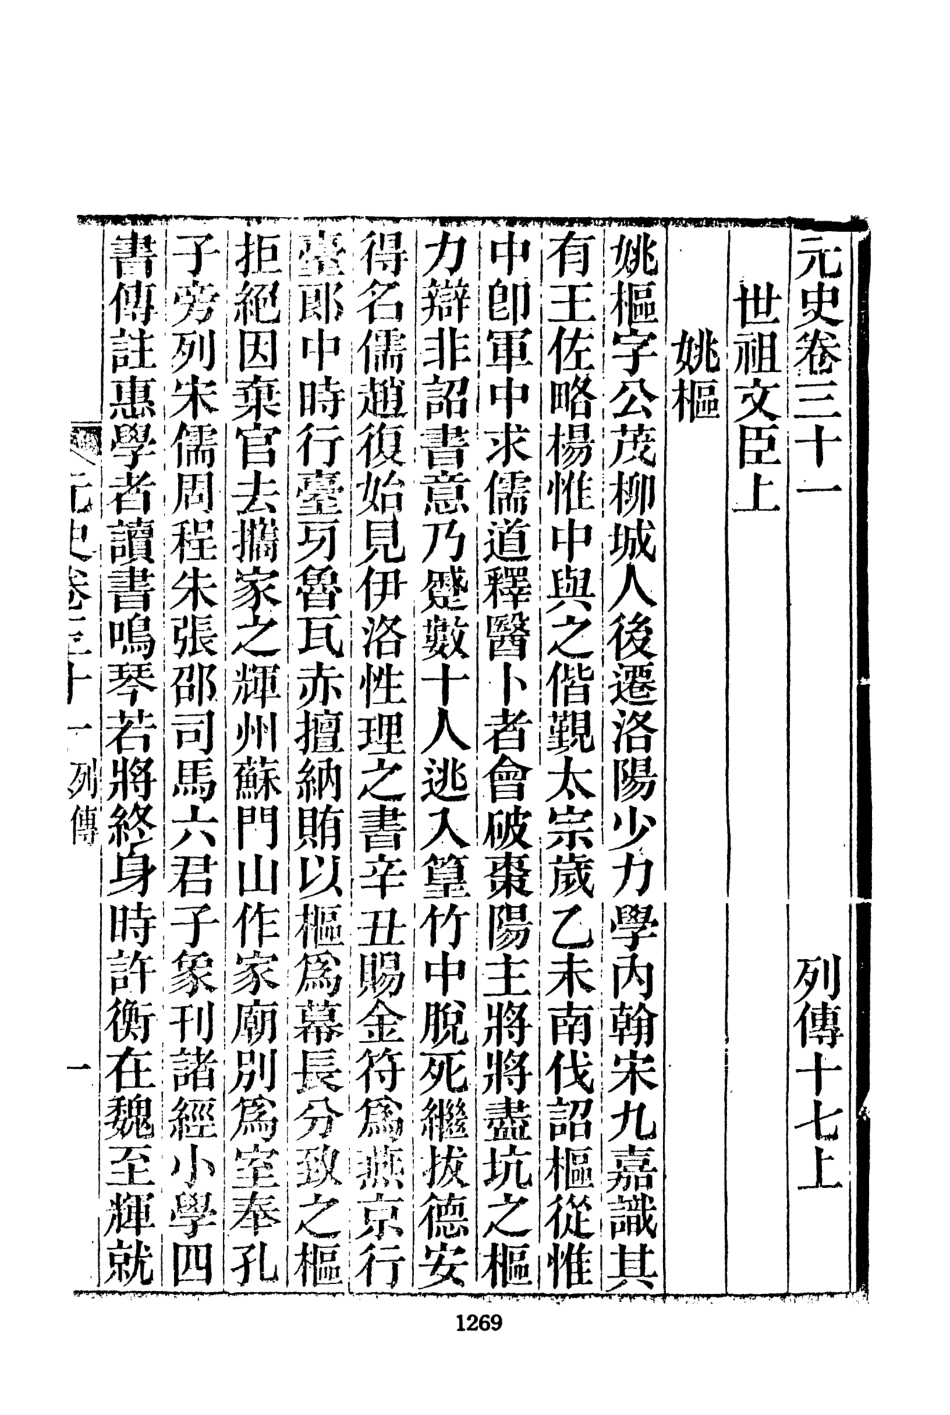 元史卷三十一　列傳十七上
世祖文臣上
姚樞
姚樞字公茂柳城人後遷洛陽少力學內翰宋九嘉識其
有王佐略楊惟中與之偕覲太宗歲乙未南伐詔樞從惟
中卽軍中求儒道釋醫卜者會破棗陽主將將盡坑之樞
力辯非詔書意乃蹙數十人逃入篁竹中脫死繼拔德安
得名儒趙復始見伊洛性理之書辛丑賜金符爲燕京行
臺郎中時行臺牙魯瓦赤擅納賄以樞爲幕長分致之樞
拒絕因棄官去攜家之輝州蘇門山作家廟別爲室奉孔
子旁列宋儒周程朱張邵司馬六君子象刊諸經小學四
書傳註惠學者讀書鳴琴若將終身時許衡在魏至輝就
元史卷三十一　列傳　一
1269